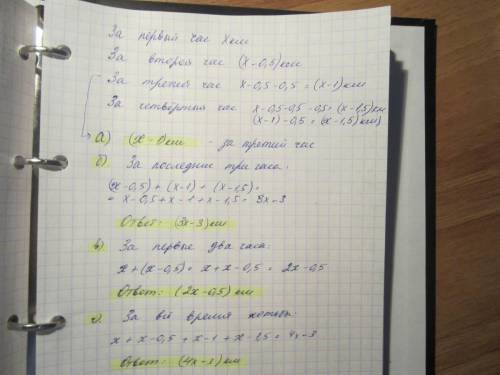 За первый час x км
За второй час (x-0,5) км
За третий час x-0,5-0,5 = (x-1) км
За четвёртый час x-0,5-0,5-0,5 = (x-1,5) км
(x-1)-0,5 = (x-1,5) км)
а) (x-1) км - за третий час
б) За последние три часа:
(x-0,5) + (x-1) + (x-1,5) =
= x-0,5+x-1+x-1,5 = 3x-3
Ответ: (3x-3) км
в) За первые два часа:
x+(x-0,5) = x+x-0,5 = 2x-0,5
Ответ: (2x-0,5) км
г) За всё время ходьбы:
x+x-0,5+x-1+x-1,5 = 4x-3
Ответ: (4x-3) км